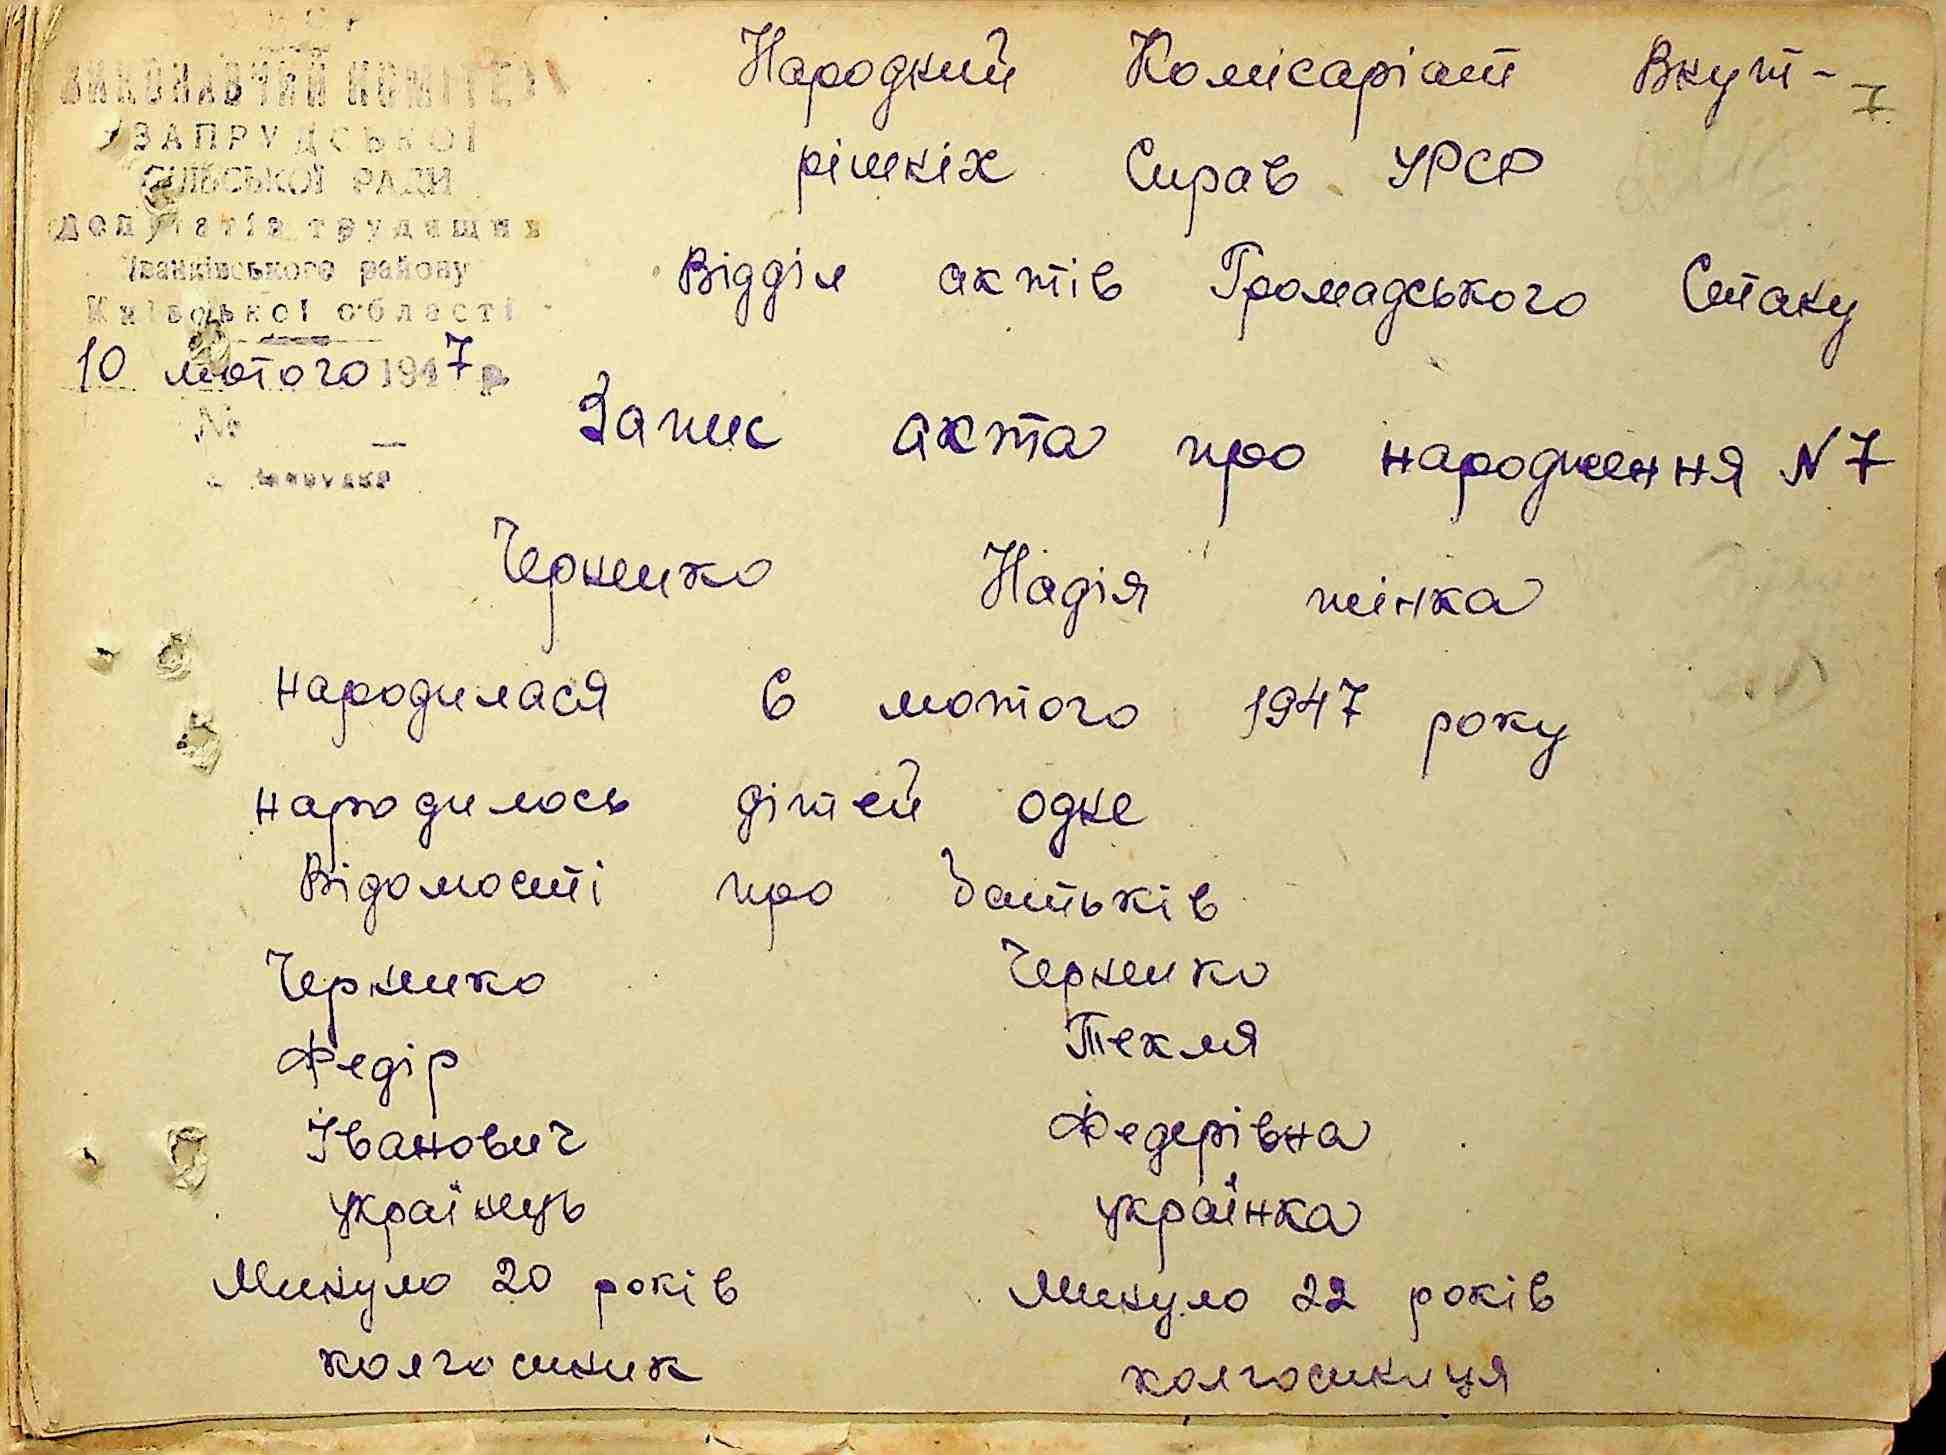 ВИКОНАВЧИЙ КОМІТЕТ
ЗАПРУДСЬКОЇ
СІЛЬСЬКОЇ РАДИ
депутатів трудящих
Іванківського району
Київської області
10 лютого 1947 р
№
Народний Комісаріат Внут-
рішніх Справ УРСР
Відділ актів Громадського Стану
Запис акта про народження N 7
Черненко Надія жінка
народилася 6 лютого 1947 року
народилось дітей одне
Відомості про батьків
Черненко Черненко
Федір Текля
Іванович Федерівна
українець українка
Минуло 20 років Минуло 22 років
колгоспник колгоспниця